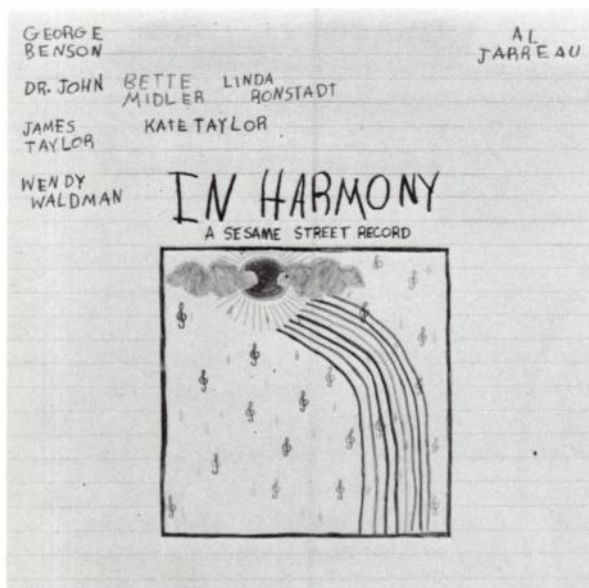 GEORGE
BENSON
AL
JARREAU
DR. JOHN
BETTE
MIDLER
LINDA
RONSTADT
JAMES
TAYLOR
KATE TAYLOR
WENDY
WALDMAN
IN HARMONY
A SESAME STREET RECORD